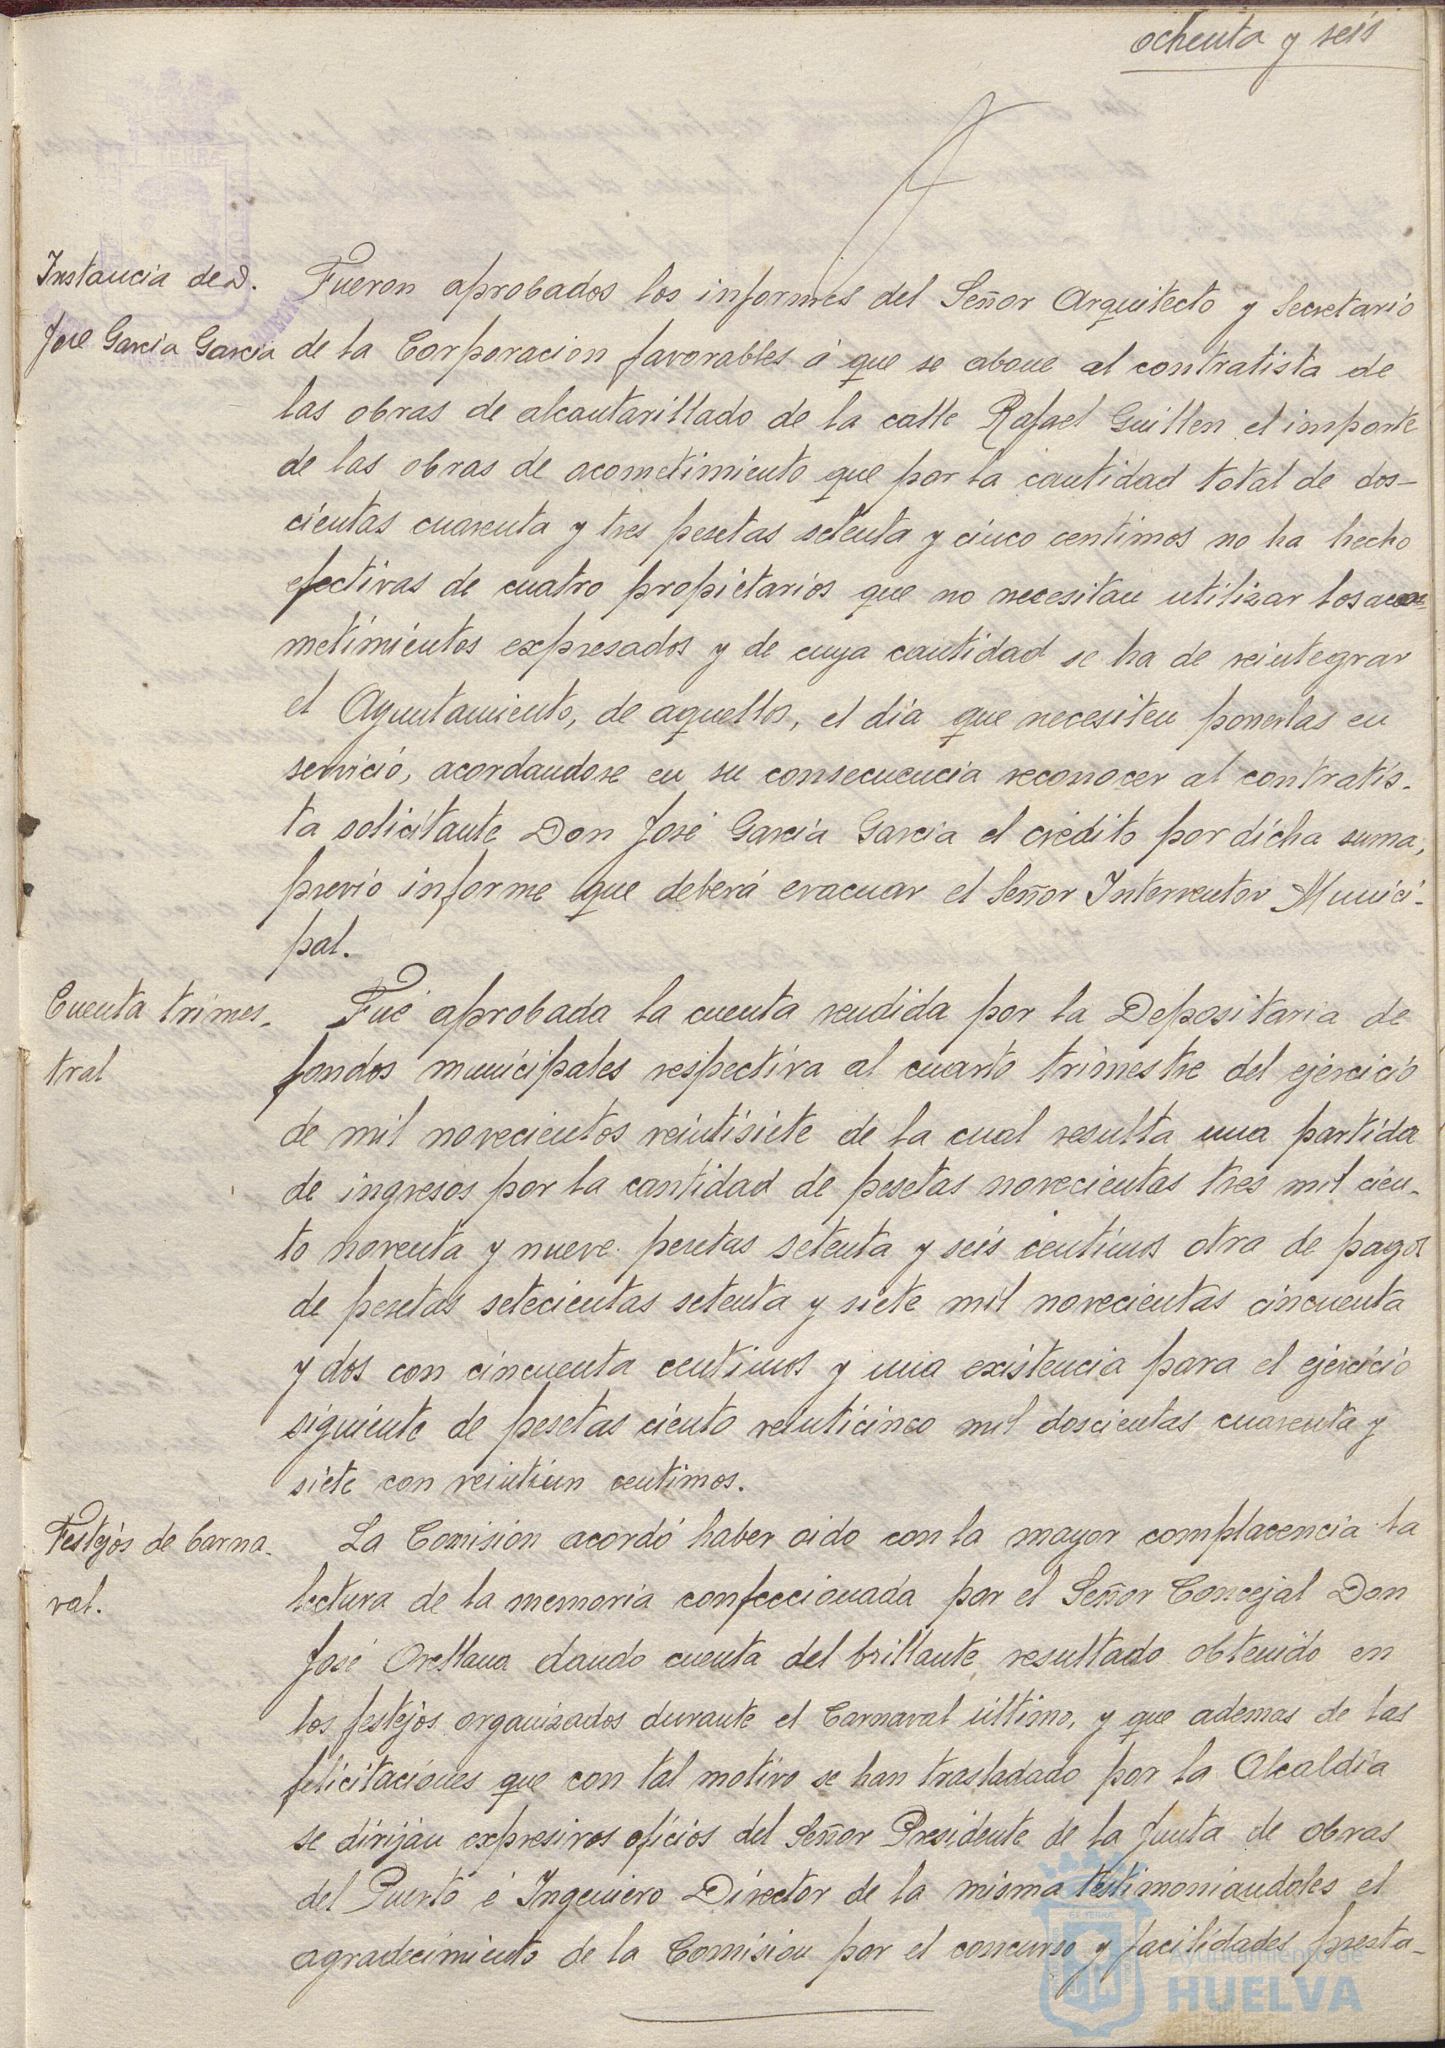 ochenta y seis
Instancia de D.
José Garcia Garcia
Fueron aprobados los informes del Señor Arquitecto y Secretario
de la Corporacion favorables á que se abone al contratista de
las obras de alcantarillado de la calle Rafael Guillen el importe
de las obras de acometimiento que por la cantidad total de dos-
cientas cuarenta y tres pesetas setenta y cinco centimos no ha hecho
efectivas de cuatro propietarios que no necesitan utilizar los aco-
metimientos expresados y de cuya cantidad se ha de reintegrar
el Ayuntamiento, de aquellos, el dia que necesiten ponerlas en
servicio, acordandose en su consecuencia reconocer al contratis-
ta solicitante Don José Garcia Garcia el crédito por dicha suma,
previo informe que deberá evacuar el Señor Interventor Munici-
pal.
Cuenta trimes-
tral
Fué aprobada la cuenta rendida por la Depositaria de
fondos municipales respectiva al cuarto trimestre del ejercicio
de mil novecientos veintisiete de la cual resulta una partida
de ingresos por la cantidad de pesetas novecientas tres mil cien-
to noventa y nueve pesetas setenta y seis centimos otra de pagos
de pesetas setecientas setenta y siete mil novecientas cincuenta
y dos con cincuenta centimos y una existencia para el ejercicio
siguiente de pesetas ciento veinticinco mil doscientas cuarenta y
siete con veintiun centimos.
Festejos de Carna-
val.
La Comisión acordó haber oido con la mayor complacencia la
lectura de la memoria confeccionada por el Señor Concejal Don
José Orellana dando cuenta del brillante resultado obtenido en
los festejos organizados durante el Carnaval último, y que ademas de las
felicitaciones que con tal motivo se han trasladado por la Alcaldia
se dirijan expresivos oficios del Señor Presidente de la Junta de obras
del Puerto é Ingeniero Director de la misma testimoniandoles el
agradecimiento de la Comision por el concurso y facilidades presta-
Ayuntamiento de
HUELVA